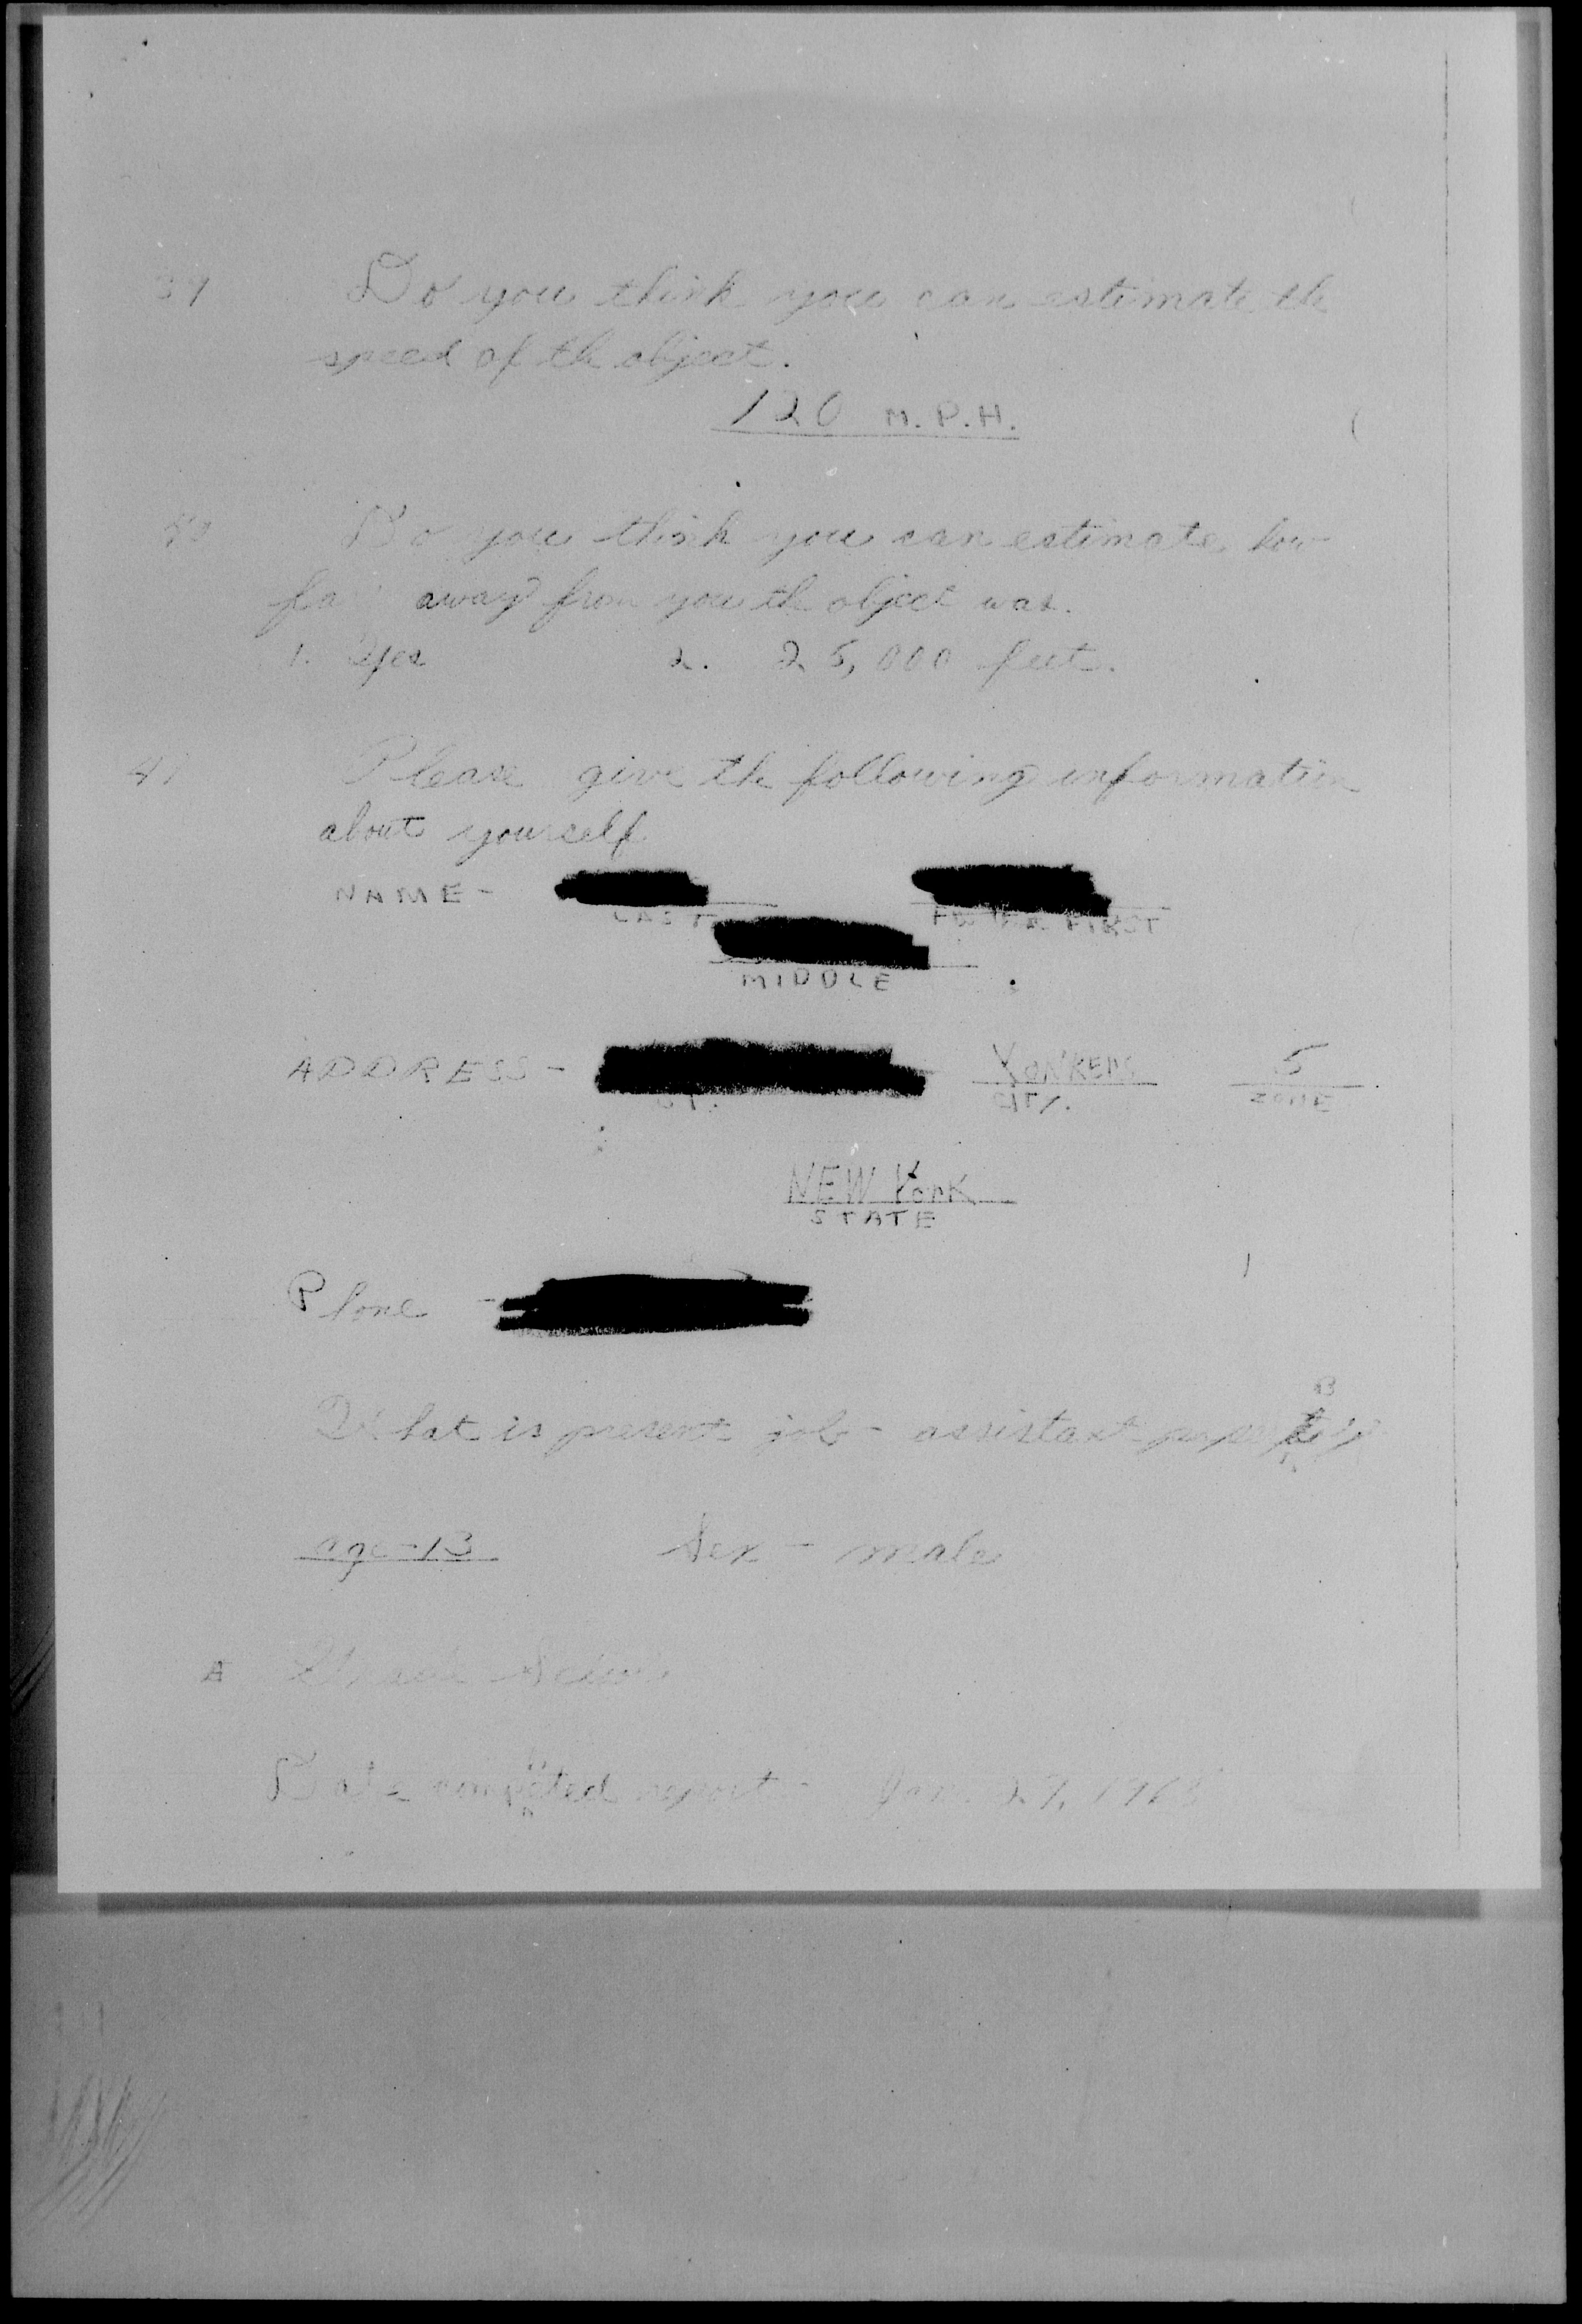 39 Do you think you can estimate the
speed of th object.
120 M.P.H.
40 Do you think you can estimate how
far away from you th object was.
1. Yes 2. 25,000 feet.
41 Please give th following information
about yourself
NAME -
LAST FIRST
MIDDLE
ADDRESS - YONKERS 5
ST. CITY. ZONE
NEW YORK
STATE
Phone -
What is present job - assistant
age - 13 Sex - male
A
Date completed report - Jan. 27, 196